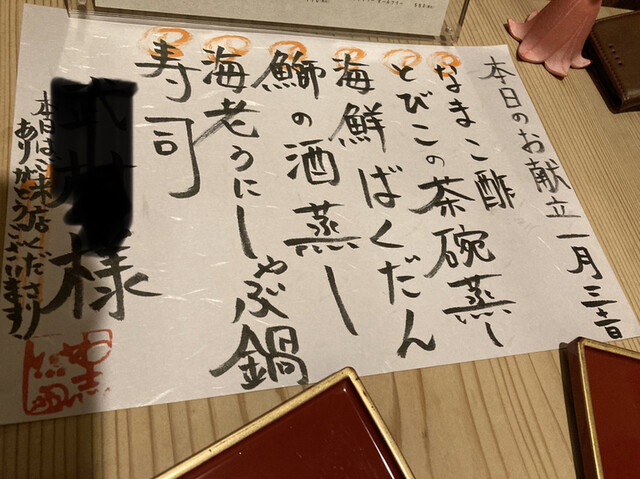 本日のお献立 一月三十一日
なまこ酢
とびこの茶碗蒸し
海鮮ばくだん
鰤の酒蒸し
海老うにしゃぶ鍋
寿司
様
本日はご来店くださり
ありがとうございます